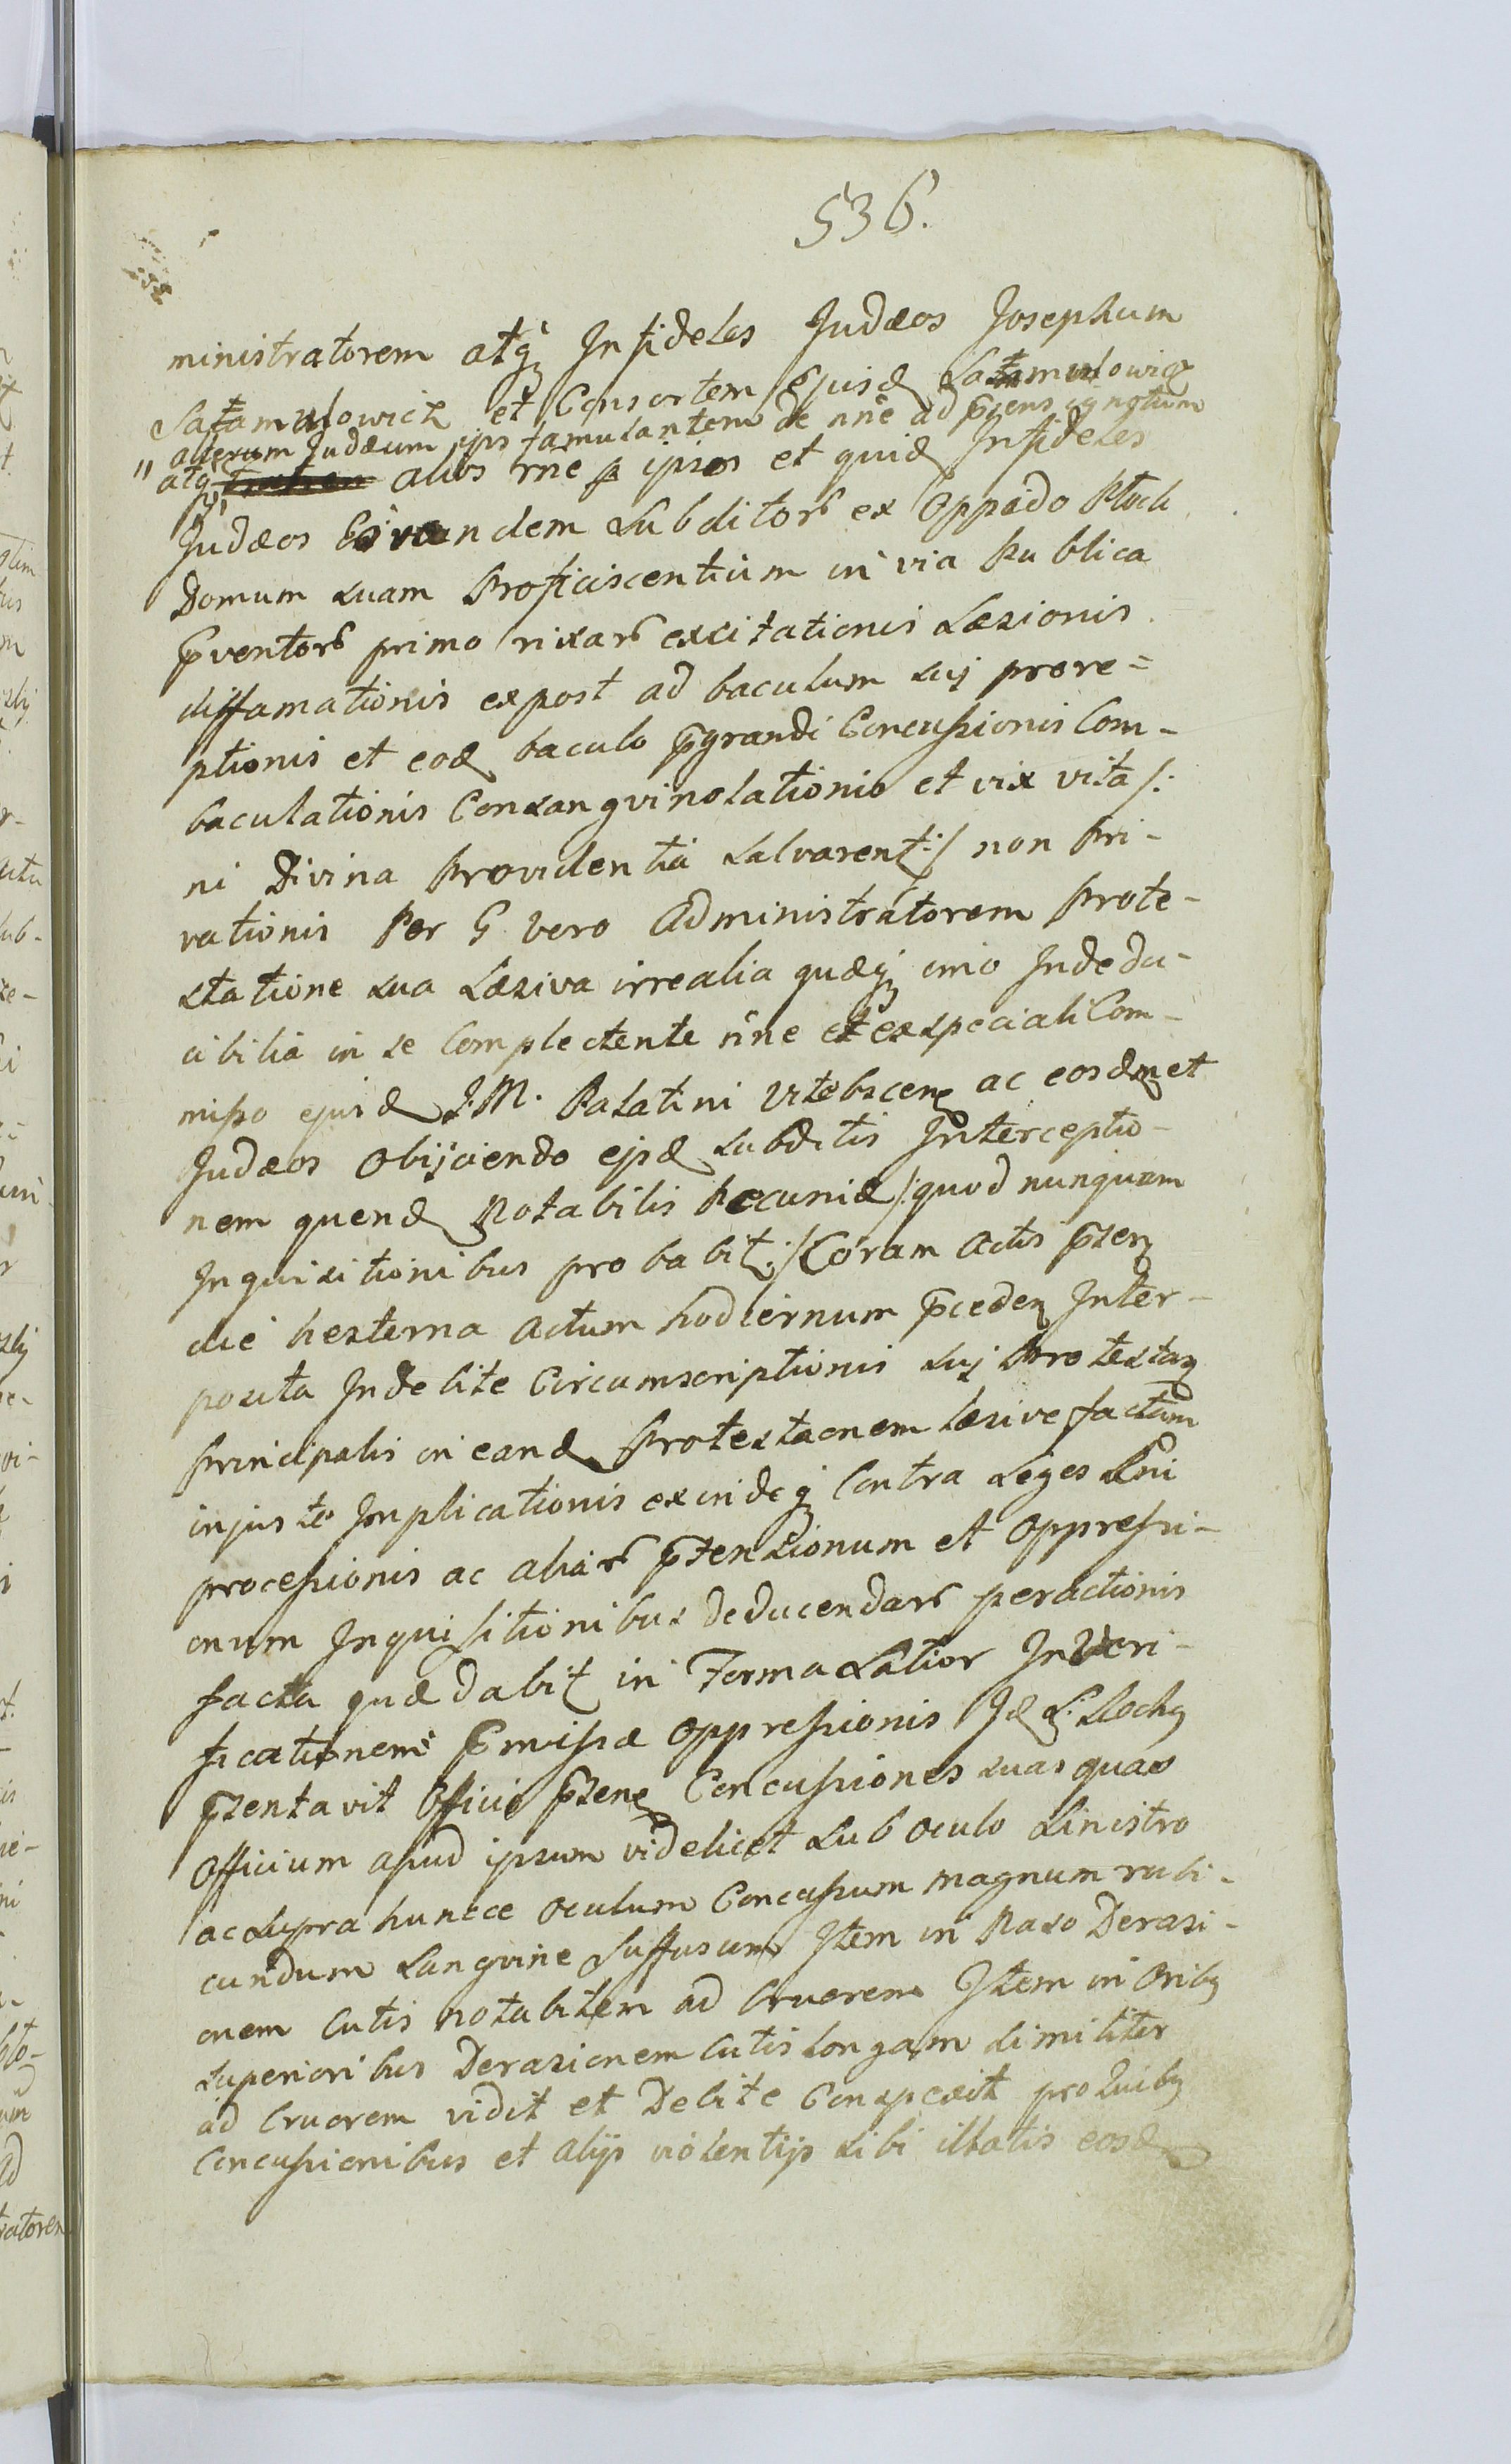 536.
ministratorem atq; Infideles Judæos Josephum
Satamulowicz et Consortem Ejusd Satamulowicz
alterum Judæum ips famulantem de nne ad p̄sens ignotum
" atq; alios rne ipsos et quid Infideles
Judæos Eorundem Subditor ex Oppido Ploch
Domum suam Proficiscentium in via Publica
p̄ventor primo rixar excitationis Læsionis
diffamationis expost ad baculum suj prore=
ptionis et eod baculo p̄grandi Concussionis Com-
baculationis Consangvinolationis et vix vita /:
ni Divina Providentia salvarent :/ non Pri-
vationis Per G. vero Administratorem Prote-
statione sua Læsiva irrealia quæq; imo Indedu-
cibilia in se Complectente sine et ex speciali Com-
misso ejusd J.M. Palatini Vitebscen ac eosdemet
Judæos Obijciendo ejsd subditis Interceptio-
nem quend Notabilis Pecuniæ /: quod nunquam
Inquisitionibus probabit :/ Coram Actis p̄sen
die hesterna Actum hodiernum p̄ceden Inter-
posita Indebite Circumscriptionis suj Protestan
Principalis in eand Protestaonem læsive factam
injuste Implicationis exindeq; Contra Leges Rni
processionis ac aliar p̄tensionum et Oppressi-
onum Inquisitionibus deducendar peractionis
facta quæ dabit in Forma Latior In Veri-
ficationem P̄missæ Oppressionis Id
p̄sentavit Officio p̄sen Concussiones suas quas
Officium apud ipsum videlicet sub Oculo Sinistro
ac supra huncce Oculum Concussum magnum rubi-
cundum Sangvine Suffusum Item in Naso Derasi-
onem Cutis notabilem ad Cruorem Item in Orib
superioribus Derasionem Cutis longam similiter
ad Cruorem vidit et Debite Conspexit pro Quib
Concussionibus et alijs violentijs sibi illatis eosd